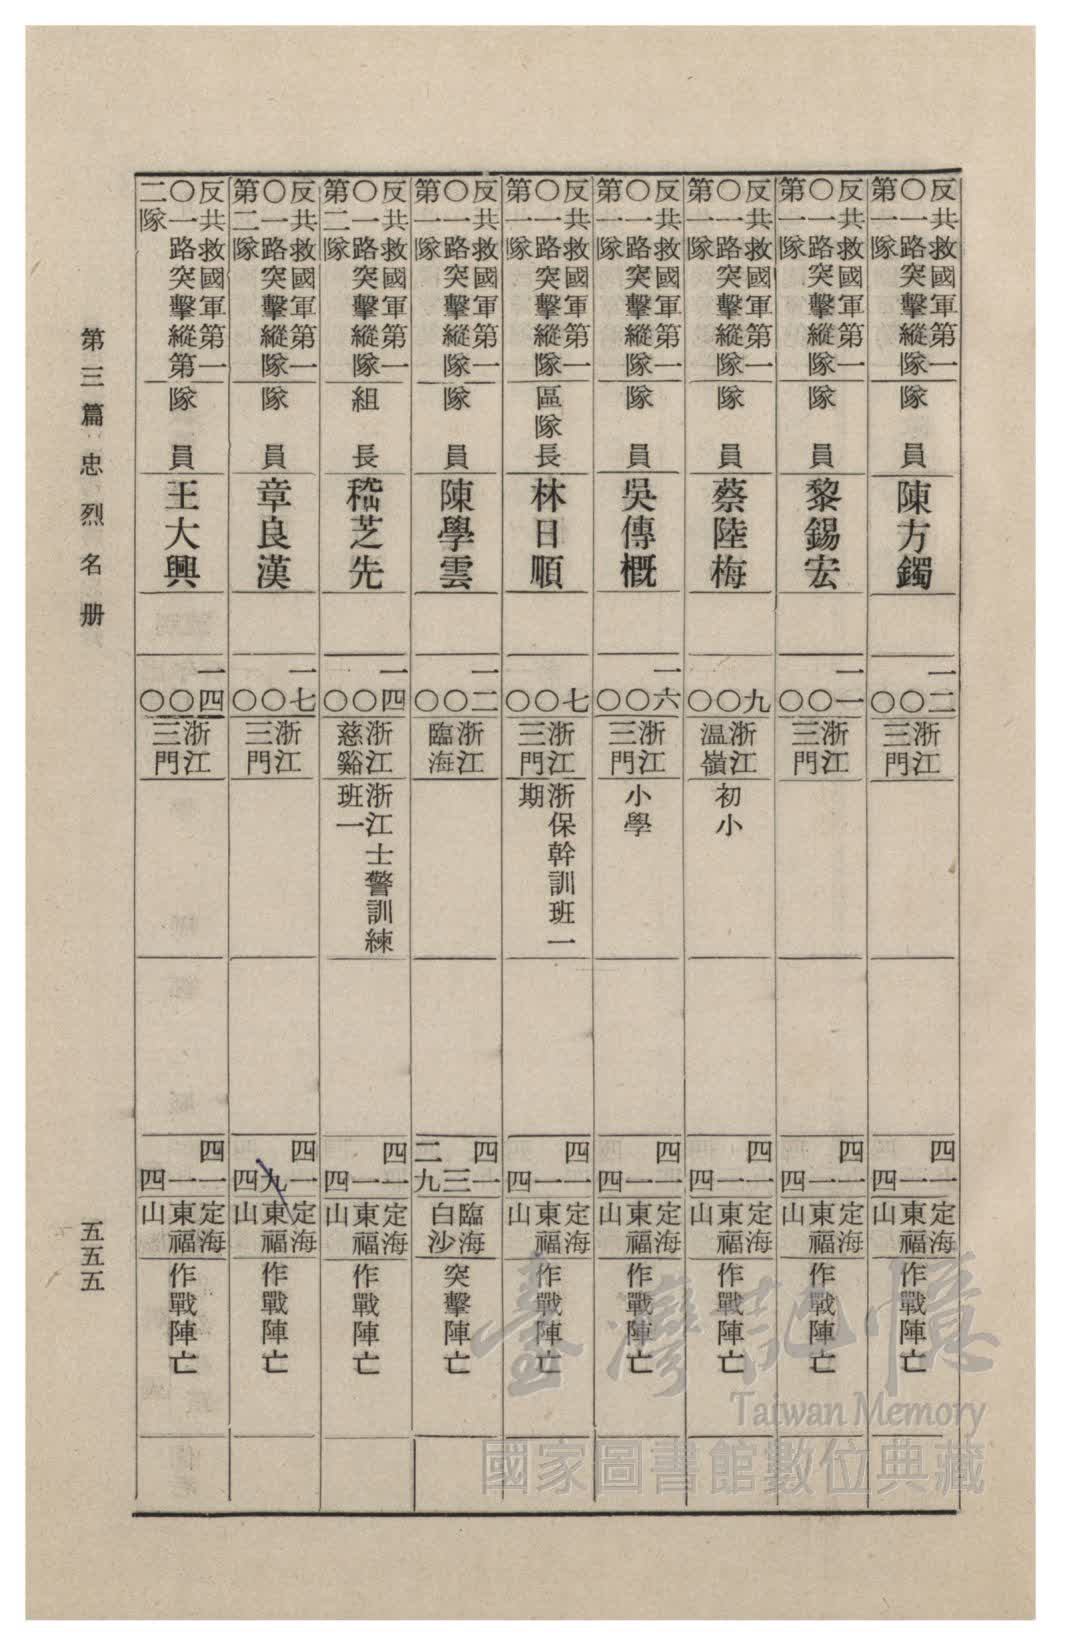 反共救國軍第一
〇一路突擊縱隊
第一隊
隊員
陳方鐲
一二
〇
〇
浙江
三門
四一
一
四
定海
東福
山
作戰陣亡
反共救國軍第一
〇一路突擊縱隊
第一隊
隊員
黎錫宏
一一
〇
〇
浙江
三門
四一
一
四
定海
東福
山
作戰陣亡
反共救國軍第一
〇一路突擊縱隊
第一隊
隊員
蔡陸梅
九
〇
〇
浙江
温嶺
初小
四一
一
四
定海
東福
山
作戰陣亡
反共救國軍第一
〇一路突擊縱隊
第一隊
隊員
吳傳概
一六
〇
〇
浙江
三門
小學
四一
一
四
定海
東福
山
作戰陣亡
反共救國軍第一
〇一路突擊縱隊
第一隊
區隊長
林日順
七
〇
〇
浙江
三門
浙保幹訓班一
期
四一
一
四
定海
東福
山
作戰陣亡
反共救國軍第一
〇一路突擊縱隊
第一隊
隊員
陳學雲
一二
〇
〇
浙江
臨海
四一
三
二九
臨海
白沙
突擊陣亡
反共救國軍第一
〇一路突擊縱隊
第二隊
組長
嵇芝先
一四
〇
〇
浙江
慈谿
浙江士警訓練
班一
四一
一
四
定海
東福
山
作戰陣亡
反共救國軍第一
〇一路突擊縱隊
第二隊
隊員
章良漢
一七
〇
〇
浙江
三門
四一
九
四
定海
東福
山
作戰陣亡
反共救國軍第一
〇一路突擊縱第
二隊
隊員
王大興
一四
〇
〇
浙江
三門
四一
一
四
定海
東福
山
作戰陣亡
第三篇 忠烈名册
五五五
臺灣記憶
Taiwan Memory
國家圖書館數位典藏